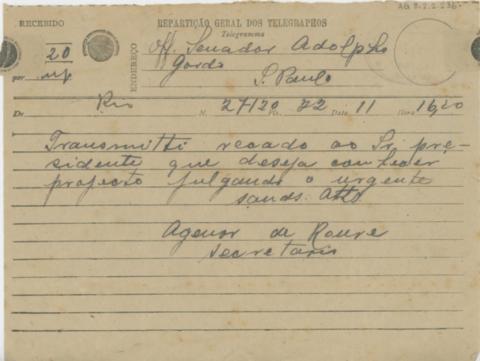 AG 8.2.2.236
RECEBIDO
REPARTIÇÃO GERAL DOS TELEGRAPHOS
Telegramma
de 20
por
ENDEREÇO
Off. Senador Adolpho
Gordo
S. Paulo
De Rio N. 27120 Pls. 22 Data 11 Hora 16,20
Transmitti recado ao Sr. pre-
sidente que deseja conhecer
projecto julgando o urgente
sauds. Atto
Agenor de Roure
secretario